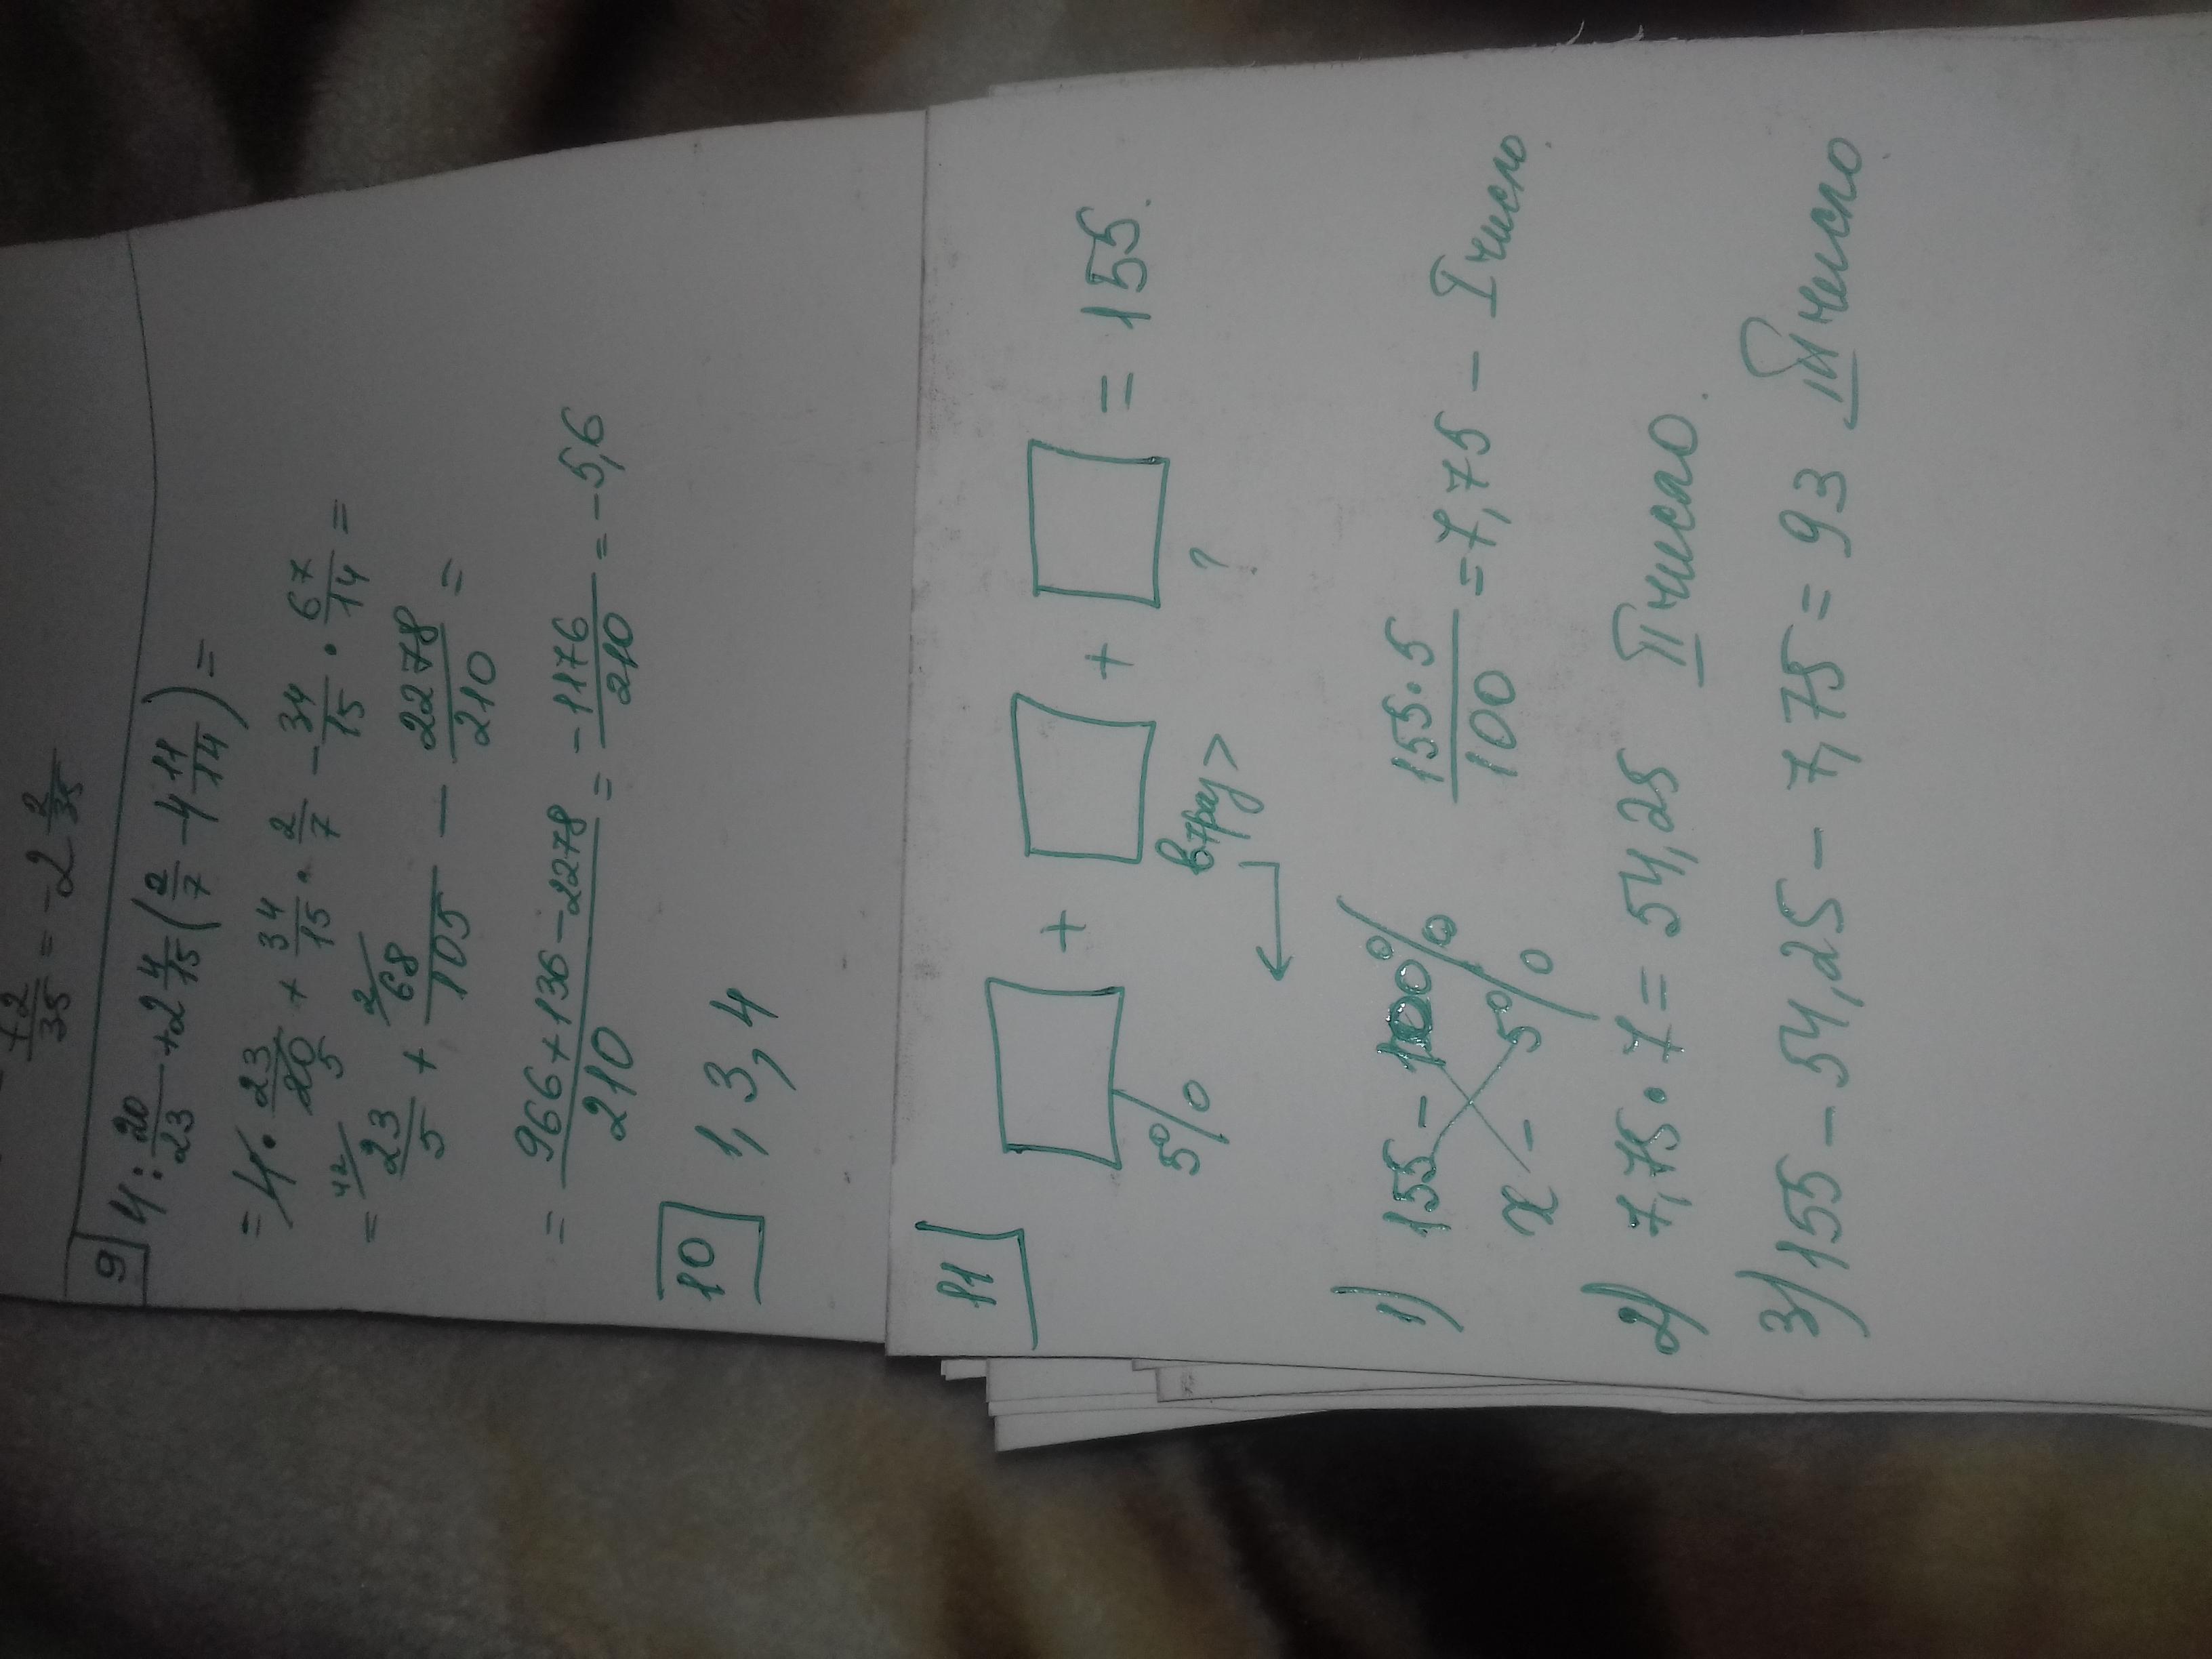 -72/35 = -2 2/35
9 4 : 20/23 + 2 4/15 (2/7 - 4 11/14) =
= 4 · 23/20 5 + 34/15 · 2/7 - 34/15 · 67/14 =
= 42/ 23/5 + 2/ 68/105 - 2278/210 =
= 966+136-2278/210 = -1176/210 = -5,6
10 1, 3, 4
11 □ + □ + □ = 155.
5% ← в 7раз > ?
1) 155 - 100% 155·5/100 = 7,75 - I число.
x - 5%
2) 7,75 · 7 = 54,25 II число.
3) 155 - 54,25 - 7,75 = 93 III число